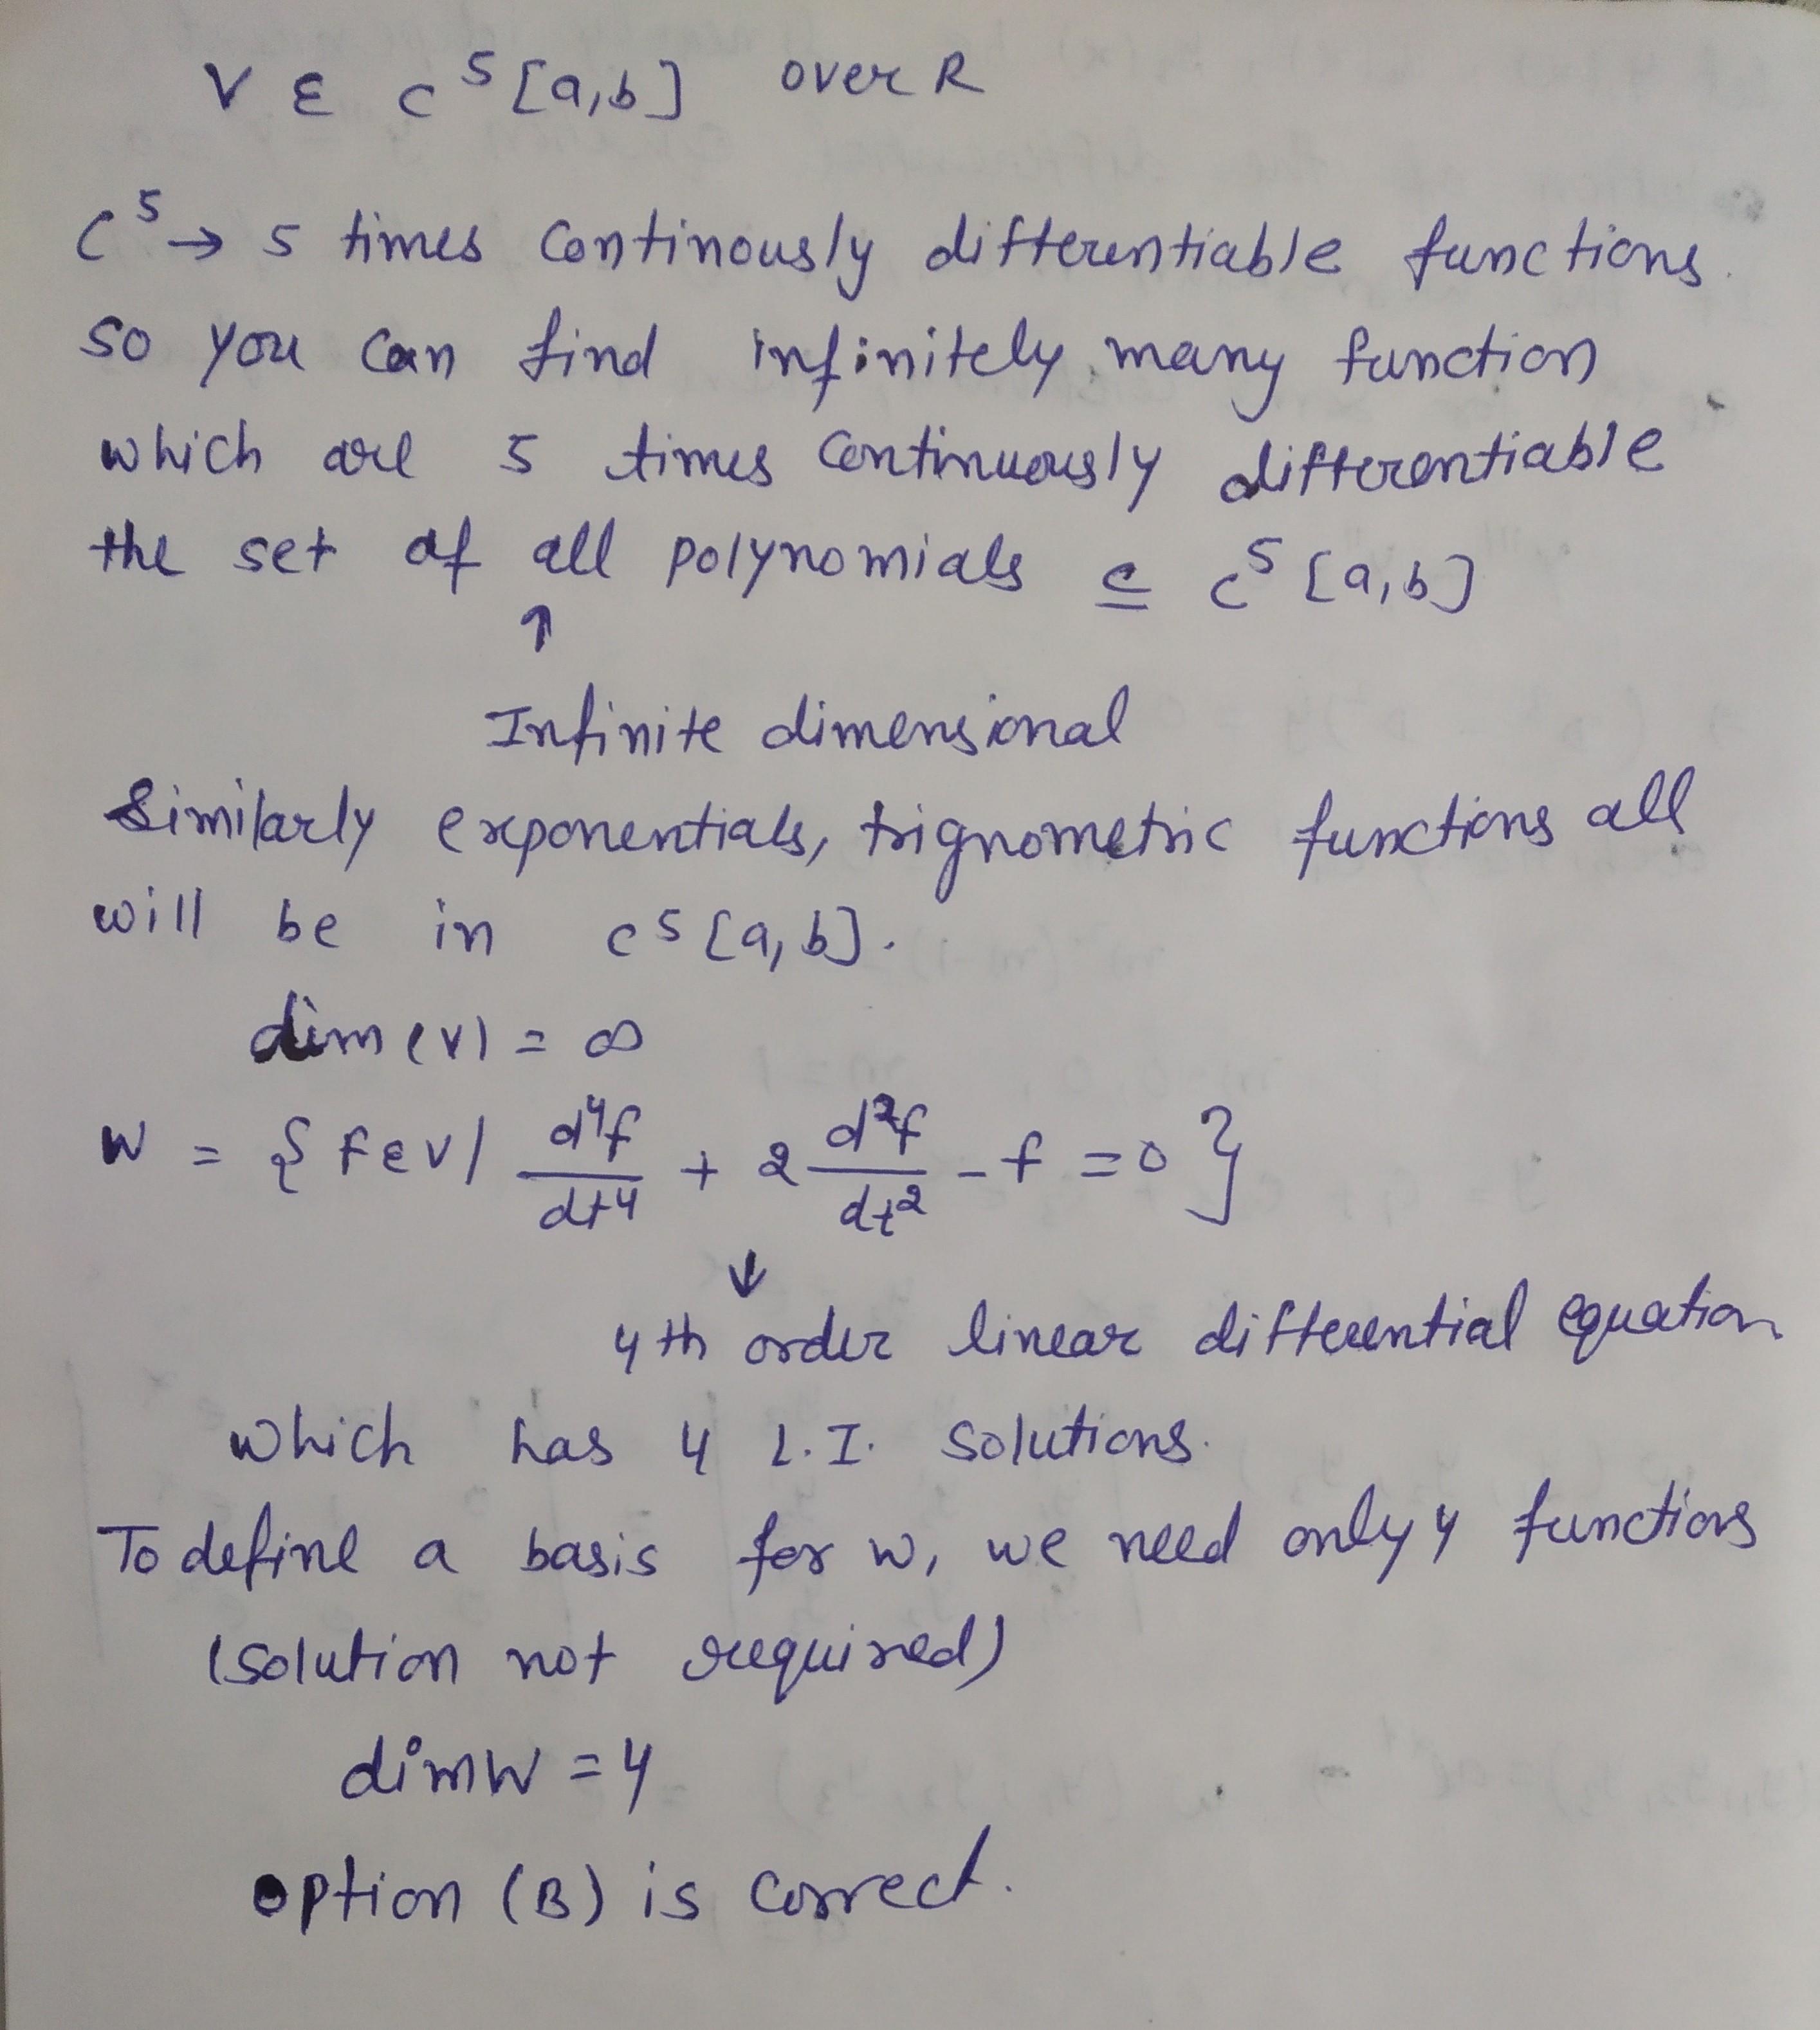 V ε C⁵[a,b] over R
C⁵ → 5 times continously differentiable functions.
so you can find infinitely many function
which are 5 times continuously differentiable
the set of all polynomials ⊆ C⁵[a,b]
↑
Infinite dimensional
Similarly exponentials, trignometric functions all
will be in C⁵[a,b].
dim(V) = ∞
W = {f∈V/ d⁴f/dt⁴ + 2 d²f/dt² - f = 0}
↓
4th order linear differential equation
which has 4 L.I. solutions.
To define a basis for W, we need only 4 functions
(solution not required)
dimW = 4
option (B) is correct.